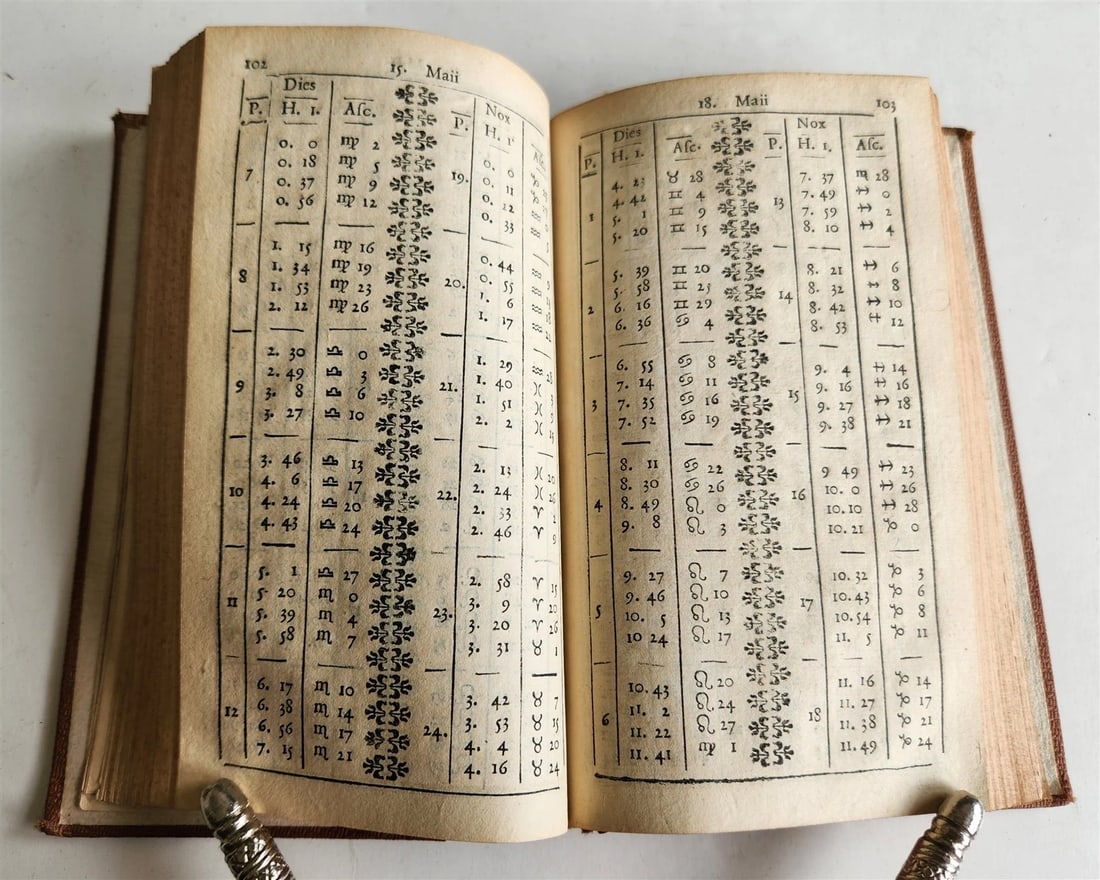 102 15. Maii
Dies Nox
P. H. 1. Aſc. P. H. 1. Aſc.
0. 0 ♍ 2 0. 0
7 0. 18 ♍ 5 19. 0. 11
0. 37 ♍ 9 0. 22 ♒
0. 56 ♍ 12 0. 33 ♒
1. 15 ♍ 16 0. 44 ♒
8 1. 34 ♍ 19 20. 0. 55 ♒
1. 53 ♍ 23 1. 6 ♒
2. 12 ♍ 26 1. 17 ♒
2. 30 ♎ 0 1. 29 ♒ 28
9 2. 49 ♎ 3 21. 1. 40 ♓ 3
3. 8 ♎ 6 1. 51 ♓
3. 27 ♎ 10 2. 2 ♓
3. 46 ♎ 13 2. 13 ♓ 20
10 4. 6 ♎ 17 22. 2. 24 ♓ 26
4. 24 ♎ 20 2. 33 ♈ 2
4. 43 ♎ 24 2. 46 ♈ 9
5. 1 ♎ 27 2. 58 ♈ 15
11 5. 20 ♏ 0 23. 3. 9 ♈ 20
5. 39 ♏ 4 3. 20 ♈ 26
5. 58 ♏ 7 3. 31 ♉ 1
6. 17 ♏ 10 3. 42 ♉ 7
12 6. 38 ♏ 14 24. 3. 53 ♉ 15
6. 56 ♏ 17 4. 4 ♉ 20
7. 15 ♏ 21 4. 16 ♉ 24
18. Maii 103
Dies Nox
P. H. 1. Aſc. P. H. 1. Aſc.
4. 23 ♉ 28 7. 37 ♏ 28
1 4. 42 ♊ 4 13 7. 49 ♐ 0
5. 1 ♊ 9 7. 59 ♐ 2
5. 20 ♊ 15 8. 10 ♐ 4
5. 39 ♊ 20 8. 21 ♐ 6
2 5. 58 ♊ 25 14 8. 32 ♐ 8
6. 16 ♊ 29 8. 42 ♐ 10
6. 36 ♋ 4 8. 53 ♐ 12
6. 55 ♋ 8 9. 4 ♐ 14
3 7. 14 ♋ 11 15 9. 16 ♐ 16
7. 35 ♋ 16 9. 27 ♐ 18
7. 52 ♋ 19 9. 38 ♐ 21
8. 11 ♋ 22 9 49 ♐ 23
4 8. 30 ♋ 26 16 10. 0 ♐ 26
8. 49 ♌ 0 10. 10 ♐ 28
9. 8 ♌ 3 10. 21 ♑ 0
9. 27 ♌ 7 10. 32 ♑ 3
5 9. 46 ♌ 10 17 10. 43 ♑ 6
10. 5 ♌ 13 10. 54 ♑ 8
10 24 ♌ 17 11. 5 ♑ 11
10. 43 ♌ 20 11. 16 ♑ 14
6 11. 2 ♌ 24 18 11. 27 ♑ 17
11. 22 ♌ 27 11. 38 ♑ 21
11. 41 ♍ 1 11. 49 ♑ 24